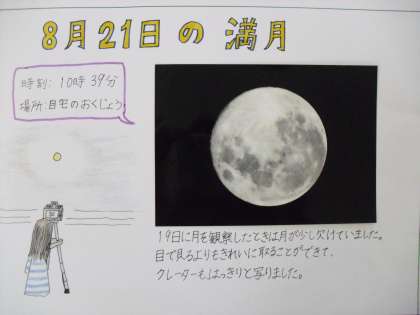 8月21日の満月
時刻:10時39分
場所:自宅のおくじょう
19日に月を観察したときは月が少し欠けていました。
目で見るよりもきれいに取ることができて、
クレーターもはっきりと写りました。